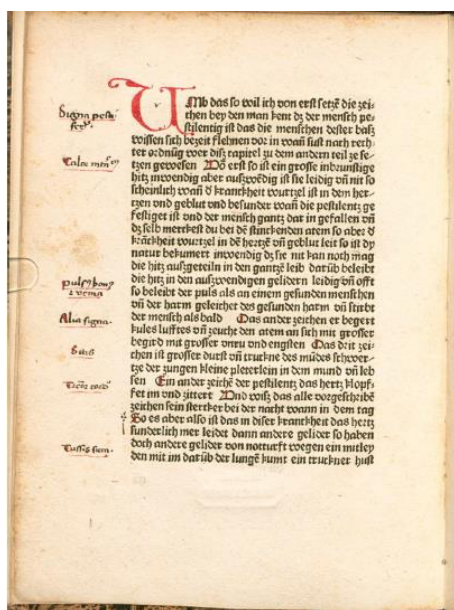 UMb das so wil ich von erst setzẽ die zei-
then bey den man kent dz der mensch pe-
stilentzig ist das die menschen dester basz
wissen sich bezeit flehnen vor in wañ sust nach rech-
ter ordnũg wer disz capitel zu dem andern teil ze se-
tzen gewesen Dõ erst so ist ein grosse inbrunstige
hitz inwendig aber auszwẽdig ist sie leidig vñ nit so
scheinlich wañ d kranckheit wurtzel ist in dem her-
tzen vnd geblut vnd besunder wañ die pestilentz ge
festiget ist vnd der mensch gantz dar in gefallen vñ
dz selb merckest du bei dẽ stinckenden atem so aber d
krãckheit wurtzel in dẽ hertzẽ vñ geblut leit so ist dy
natur bekumert inwendig dz sie nit kan noch mag
die hitz auszgeteiln in den gantzẽ leib darũb beleibt
die hitz in den auszwendigen gelidern leidig vñ offt
so beleibt der puls als an einem gesunden menschen
vñ der harm geleichet des gesunden harm vñ stirbt
der mensch als bald Das ander zeichen er begert
kules lufftes vñ zeucht den atem an sich mit grosser
begird mit grosser vnru vnd engsten Das drit zei-
chen ist grosser durst vñ truckne des mũdes schwer-
tze der zungen kleine pleterlein in dem mund vñ leb
sen Ein ander zeichẽ der pestilentz das hertz klopf-
fet im vnd zittert Vnd wisz das alle vorgescheibẽ
zeichen sein stercker bei der nacht wann in dem tag
So es aber also ist das in diser kranckheit das hertz
sunderlich mer leidet dann andere gelider so haben
doch andere gelider von notturft wegen ein mitley
den mit im darũb der lungẽ kumt ein truckner hust
Signa pesti
Calor
pulsus bonus
z vrina
Alia signa.
Sitis
Tussis sicca.